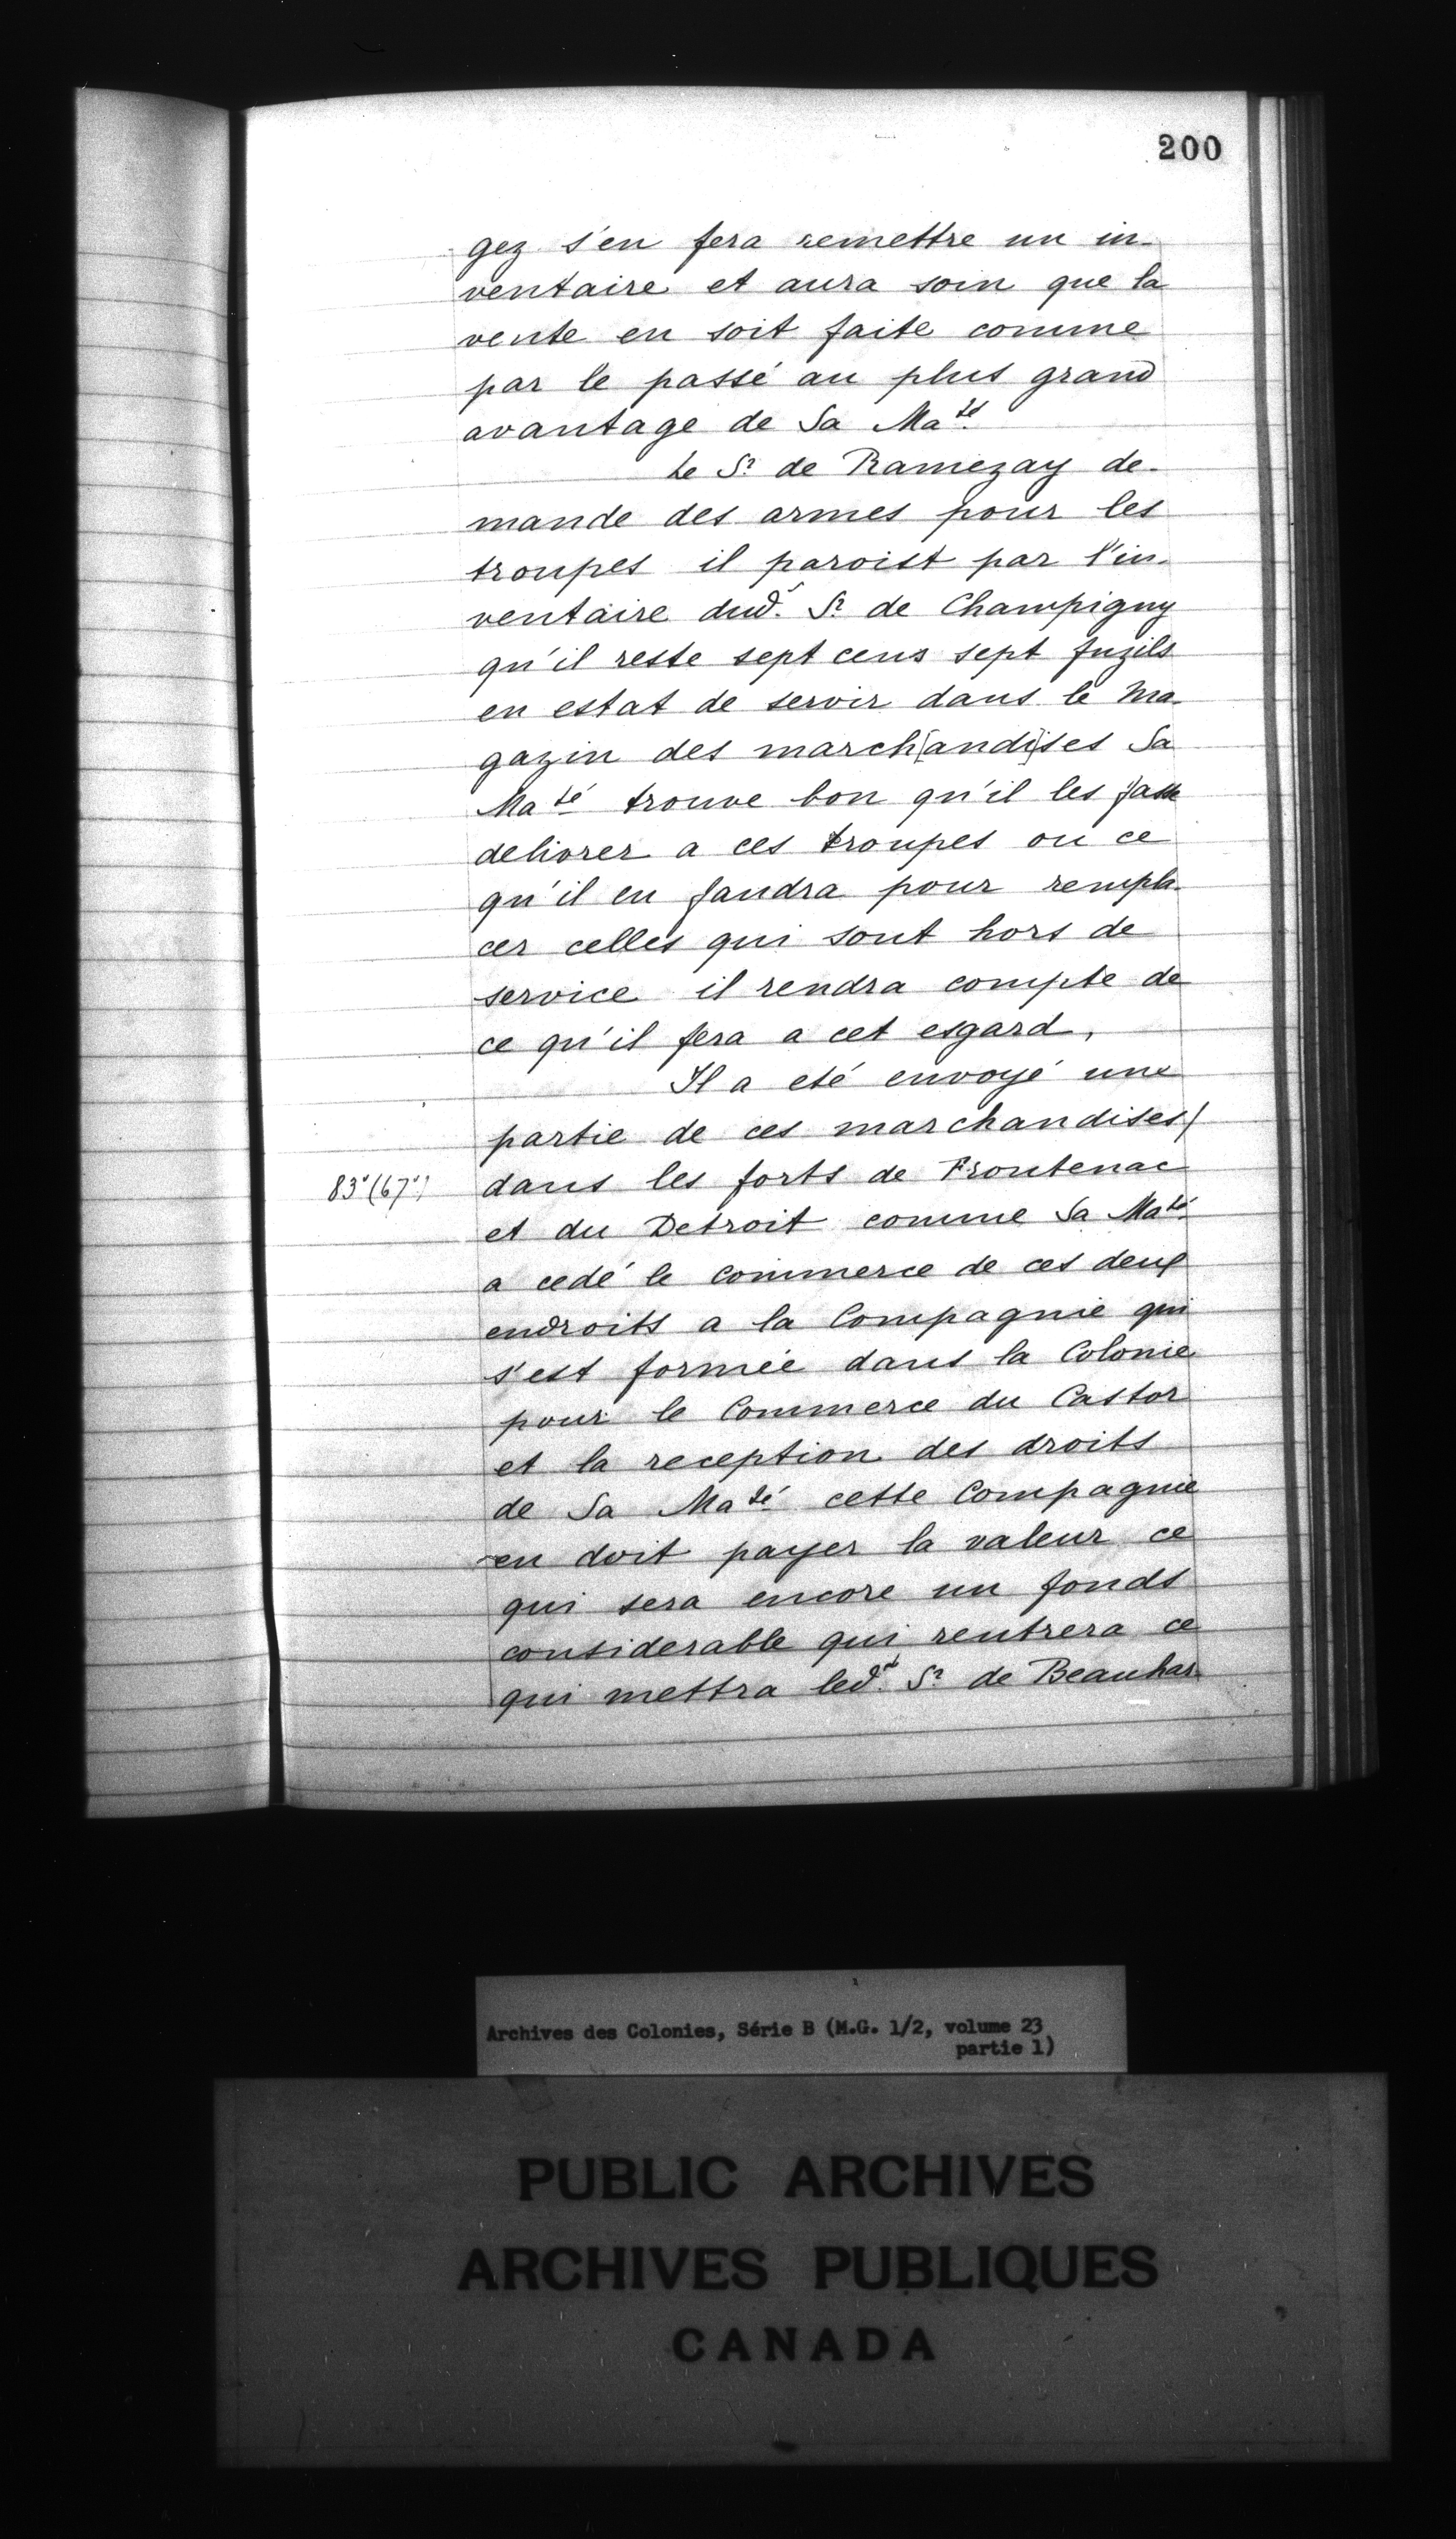 200
gez s'en fera remettre un in-
ventaire et aura soin que la
vente en soit faite comme
par le passé au plus grand
avantage de Sa Maté.
Le Sr. de Ramezay de-
mande des armes pour les
troupes il paroist par l'in-
ventaire dud. Sr. de Champigny
qu'il reste sept cens sept fuzils
en estat de servir dans le ma-
gazin des march[andi]ses Sa
Maté trouve bon qu'il les fasse
delivrer a ces troupes ou ce
qu'il en faudra pour rempla-
cer celles qui sont hors de
service il rendra compte de
ce qu'il fera a cet esgard,
Il a eté envoyé une
partie de ces marchandises/
83v (67v) dans les forts de Frontenac
et du Detroit comme Sa Maté
a cedé le commerce de ces deux
endroits a la Compagnie qui
s'est formée dans la Colonie
pour le Commerce du Castor
et la reception des droits
de Sa Maté cette Compagnie
en doit payer la valeur ce
qui sera encore un fonds
considerable qui rentrera ce
qui mettra led. Sr. de Beauhar-
Archives des Colonies, Série B (M.G. 1/2, volume 23
partie 1)
PUBLIC ARCHIVES
ARCHIVES PUBLIQUES
CANADA